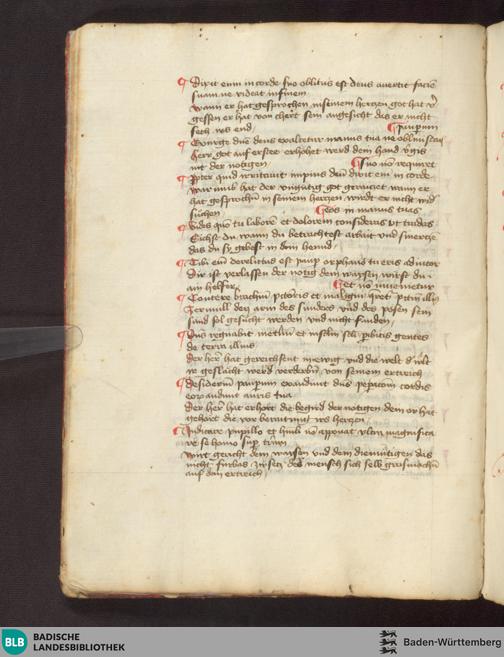 Dixit enim in corde suo oblitus est deus auertit faciē
suam ne videat in finem
wann er hat gesprochen in seinem herczen got hat v̄
gessen er hat von chert sein angesicht das er nicht
sech vs end
Exurge dn̄e deus exaltetur manus tua ne obliuiscar̄ paupum
herr got auf erstee erhöhet werd dein hand v̄gis
nit der notigen
Ppter quid irritauit impius deū dixit em̄ in corde suo nō requiret
war umb hat der vngutig got geraiczet wann er
hat gesprochn̄ in seinem herczen wirdt er nicht wid
suchen
Vides qm̄ tu laborē et dolorem consideras vt tradas eos in manus tuas
Siichst du wann du betrachtest arbait vnd smerczē
das du sy gebest in dein hennd
Tibi em̄ derelictus est paup orphano tu eris adiutor
Dir ist verlassen der notig dem waysen wirst du
ain helffer
Contere brachiū pctōris et maligni queret pctm̄ illiꝰ et nō inuenietur
Zerniull den arm des sunders vnd des posen sein
sund sol gesucht werden vnd nicht funden
Dns regnabit in etlnū et in sclm̄ scli pibitis gentes
de terra illius
Der herr hat gereichsent in ewig vnd die welt d welt
ir geslächt werd verderbn̄ von seinem ertreich
Desideriū paupum exaudiuit dn̄s pepacōm cordis
eorꝫ audiuit auris tua
Der herr hat erhört die begird der notigen dein or hat
gehört die vor beraittung irs herczen
Iudicare pupillo et humili nō apponat vltra magnifica
re se homo sup trrām
wirt gericht dem waysen vnd dem diemutigen das
nicht furbas zuseczt der mensch sich selb grosmachn̄
auf dem ertreich
BLB BADISCHE
LANDESBIBLIOTHEK
Baden-Württemberg